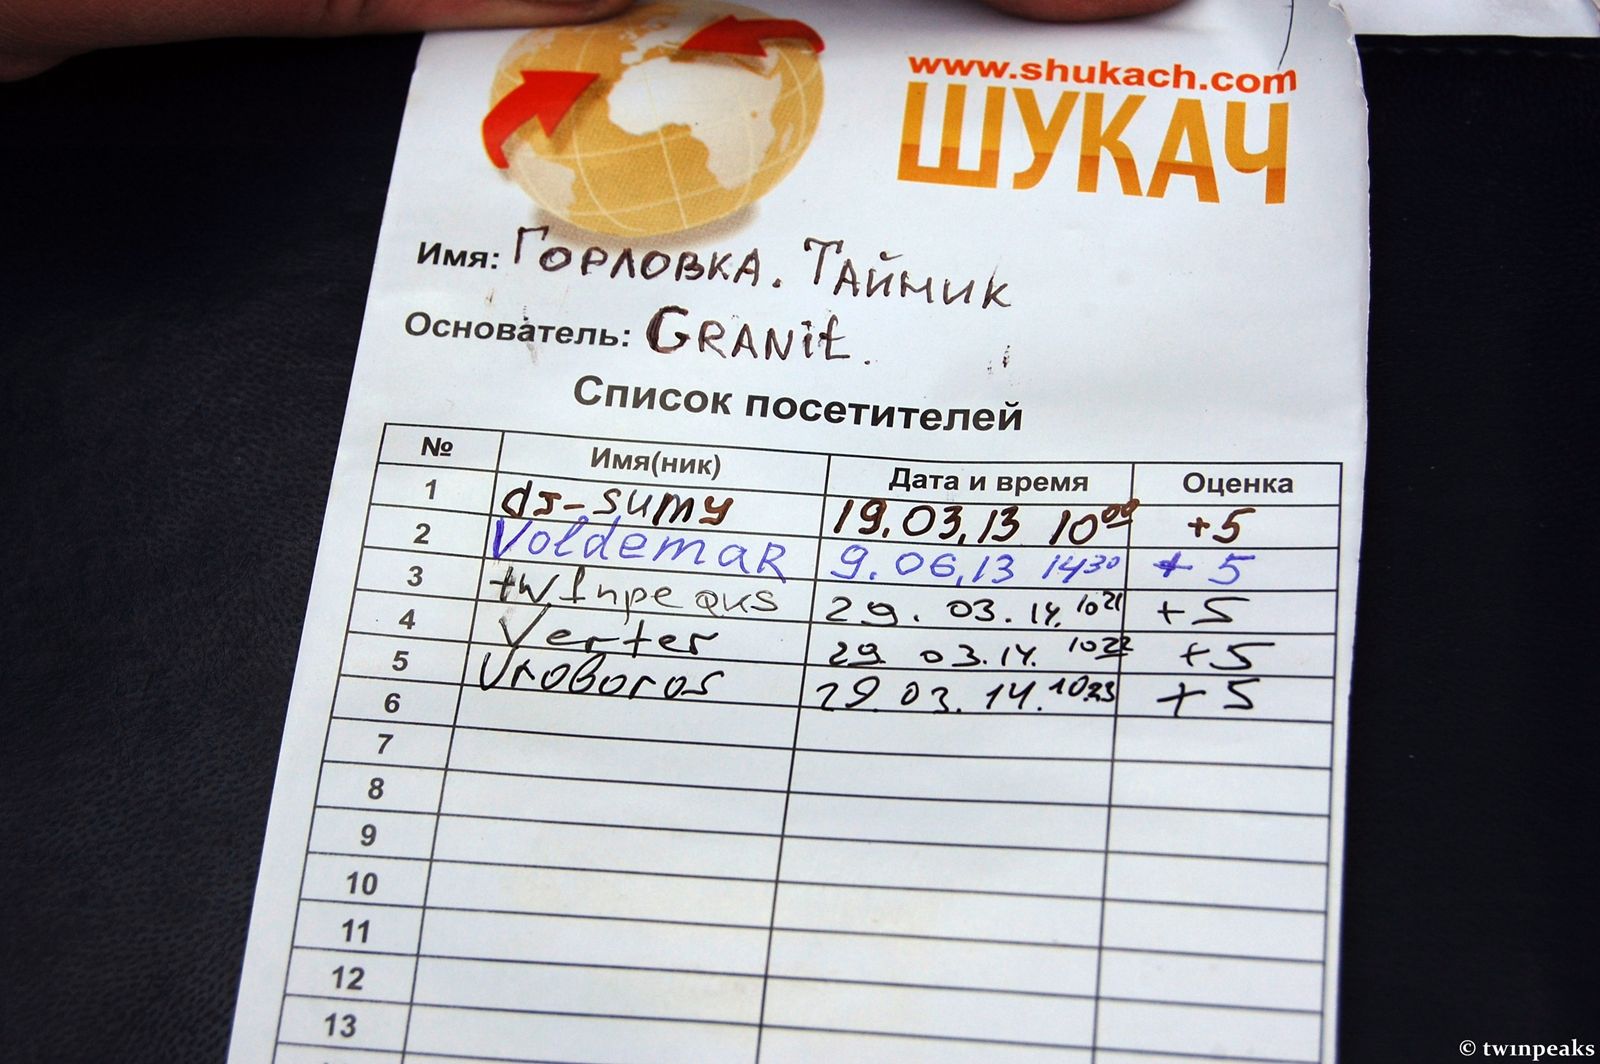 www.shukach.com
ШУКАЧ
Имя: Горловка. Тайник
Основатель: GRANit.
Список посетителей
№ Имя(ник) Дата и время Оценка
1 dj-sumy 19.03,13 10 00 +5
2 Voldemar 9.06,13 14 30 +5
3 twinpeaks 29.03.14. 10 21 +5
4 Verter 29 03.14. 10 22 +5
5 Uroboros 29.03.14. 10.23 +5
6
7
8
9
10
11
12
13
© twinpeaks